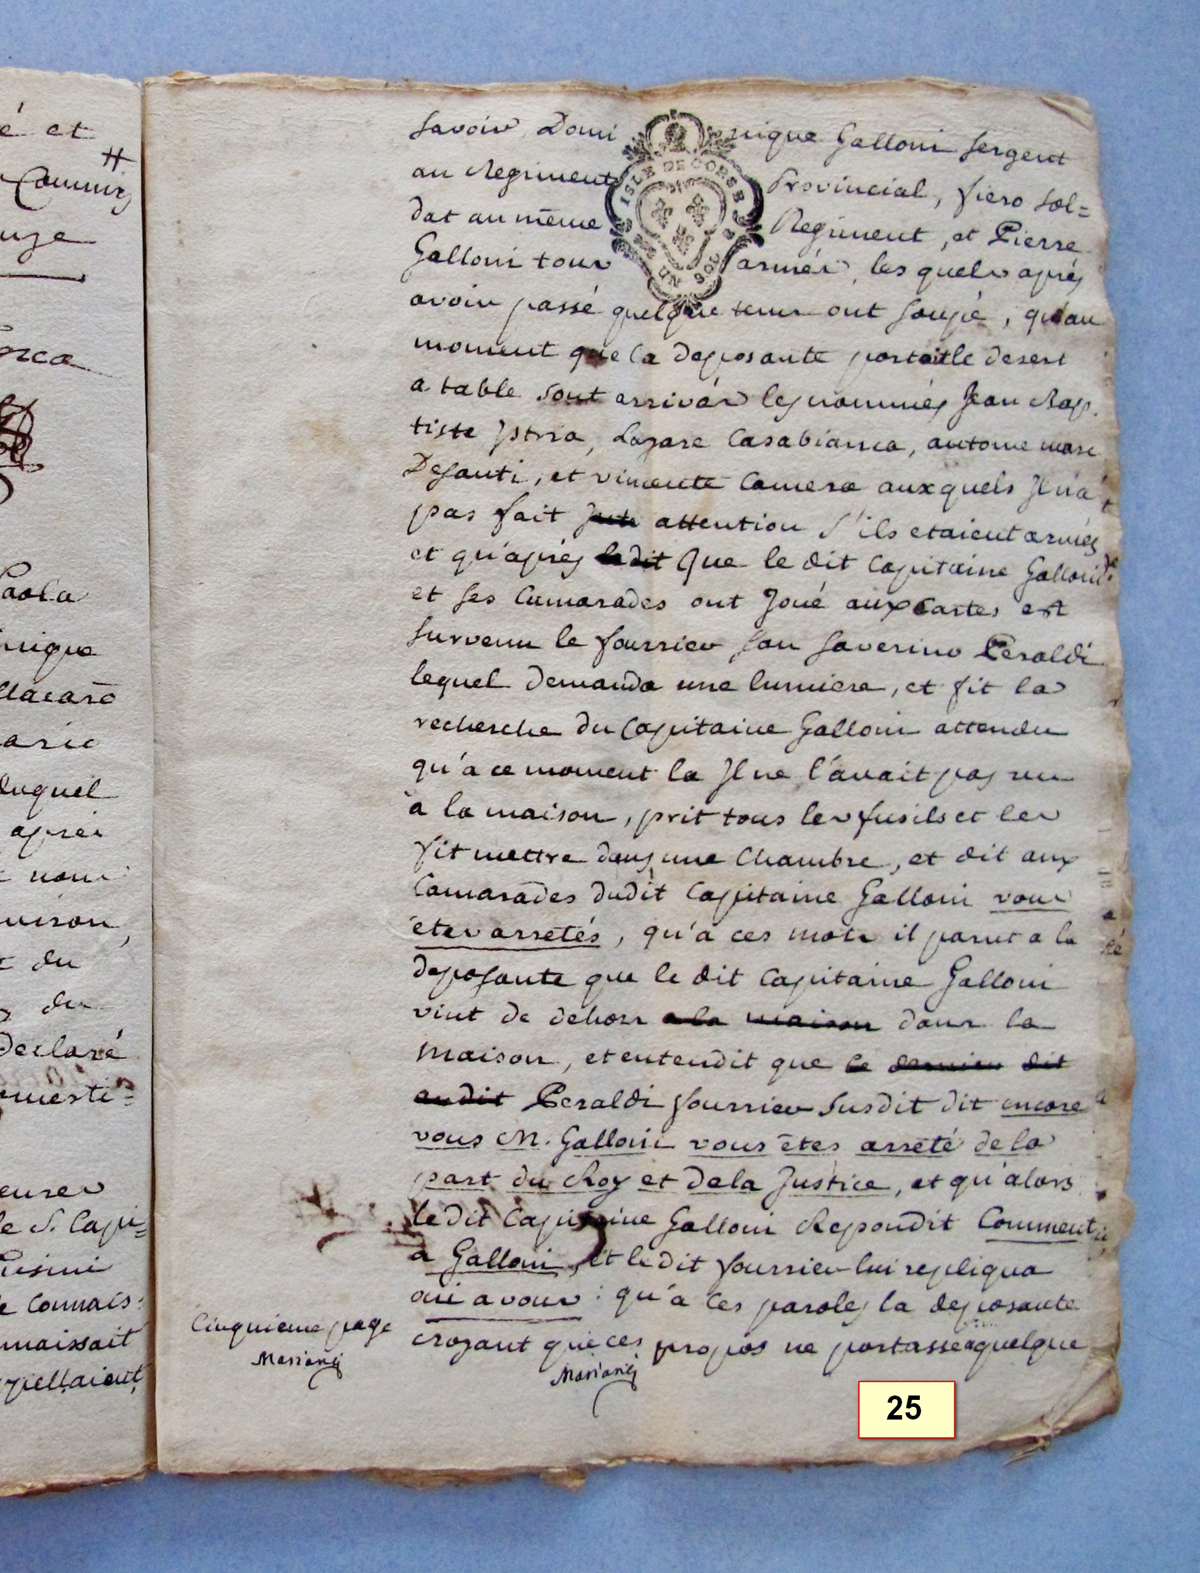 é et
#
Commis
uze
orca
Paola
nique
llacaro
ario
duquel
après
nom
uison,
du
du
Declaré
omesti=
eurer
le S. Capi=
Pisini
le connais=
nnaissait
ppellaient
savoir Domi nique Galloni sergent
au Regiment Provincial, fiero sol=
dat au même Regiment, et Pierre
Galloni tous armés, les quels aprés
avoir passé quelque tems ont soupé, qu'au
moment que la deposante portait le desert
a table sont arrivés les nommés Jean Bap=
tiste Istria, Lazare Casabianca, antoine marc
Desanti, et vincente Camera auxquels Il n'a
pas fait attention s'ils etaient armés
et qu'aprés le dit que le dit Capitaine Galloni
et ses Camarades ont Joué aux Cartes est
survenu le fourrier san Saverino Peraldi
lequel demanda une lumiere, et fit la
recherche du Capitaine Galloni attendu
qu'a ce moment la Il ne l'avait pas vu
a la maison, prit tous les fusils et les
fit mettre dans une Chambre, et dit aux
Camarades dudit Capitaine Galloni vous
étes arretés, qu'a ces mots il parut a la
deposante que le dit Capitaine Galloni
vint de dehors a la maison dans la
Maison, et entendit que le dernier dit
audit Peraldi fourrier susdit dit encore
vous M. Galloni vous étes arreté de la
part du Roy et de la Justice, et qu'alors
le dit Capitaine Galloni Repondit Comment
a Galloni, et le dit fourrier lui repliqua
oui a vous : qu'a ces paroles la deposante
croyant que ces propos ne portasse quelque
Cinquieme page
Mariani
Mariani
ISLE DE CORSE
UN SOL
25